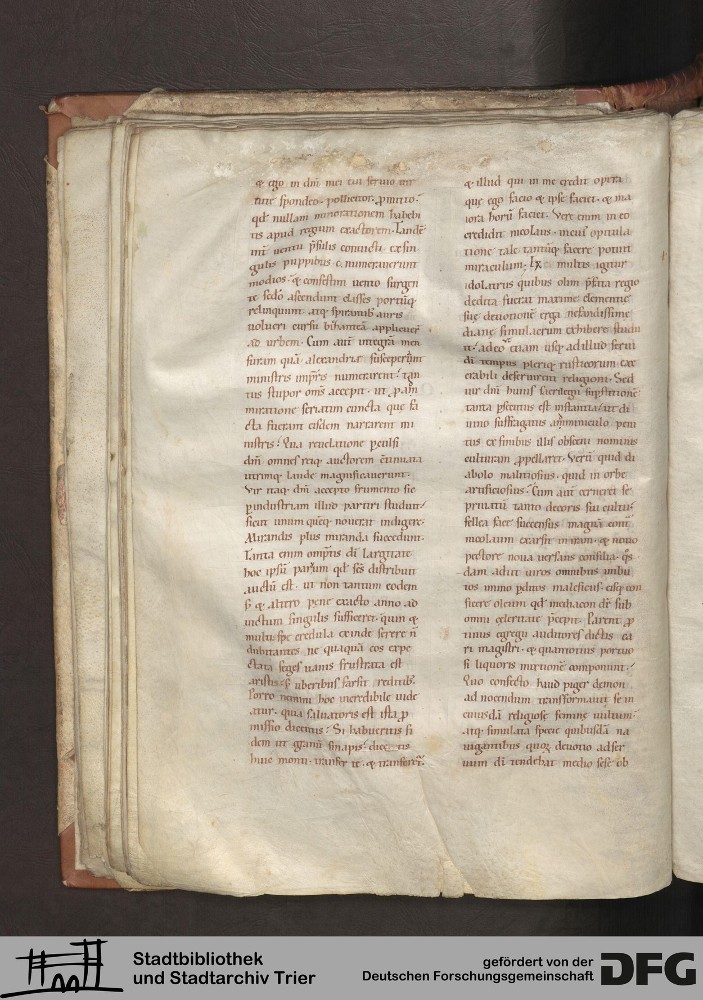 & ego in dnī mei cui seruio uir
tute spondeo. polliceor. ꝓmitto.
qd' nullam minorationem habebi
tis apud regium exactorem.
uentu conuicti ex sin
gulis puppibus c. numerauerunt
modios. & confestim uento surgen
te ascendunt classes portūq;
relinquunt. atq; spirantib; auris
uolucri cursu applicuer
ad urbem. Cum aut integrā men
suram quā alexandrie susceperant
ministris numerarent. tan
tus stupor oms accepit. ut
miratione seriatim cuncta que fa
cta fuerant eisdem narrarent mi
nistris. Qua reuelatione
dnm omnes reiq; auctorem
utrimq; laude magnificauerunt.
Vir itaq; dnī accepto frumento sic
ꝑ industriam illud partiri studuit.
sicut unum quēq; nouerat indigere.
Mirandis plus miranda succedunt.
Tanta enim omptis di largitate
hoc ipsū parum qd' scs distribuit
auctū est. ut non tantum eodem
s; & altero pene exacto anno ad
uictum singulis sufficeret. qum &
multi spe credula exinde serere ñ
dubitantes. ne quaquā eos expe
ctata seges uanis frustrata est
aristis. s; uberibus sarsit reditib;
Porro nemini hoc incredibile uide
atur. quia saluatoris est ista ꝓ
missio dicentis. Si habueritis fi
dem ut granū sinapis. dicetis
huic monti. transfer te. & transferet.
& illud qui in me credit opera
que ego facio & ipse faciet. & ma
iora horū faciet. Vere enim in eo
credidit nicolaus. incuius opitula
tione tale tantūq; facere potuit
miraculum. Ix multis igitur
idolatris quibus olim regio
dedita fuerat maxime clementie
sue deuotione erga nefandissime
diane simulacrum exhibere studu
it. adeo etiam usq; ad illud serui
di tempus pleriq; rusticorum exe
crabili deseruirent religioni. Sed
uir dni huius sacrilegii supstitione
tanta psecutus est instantia. ut di
uino suffragatus amminiculo peni
tus ex finibus illis obsceni nominis
culturam ꝓpellaret. Verū quid di
abolo malitiosius. quid in orbe
artificiosius? Cum aut cerneret se
priuatū tanto decoris sui cultu.
fellea face succensus magnā contra
nicolaum exarsit in iram. & nouo
pectore noua uersans consilia. qs
dam adiit uiros omnibus inbu
tos immo pditos maleficiis. eisq; con
ficere oleum qd' medeacon dr sub
omni celeritate precepit. Parent ꝓ
tinus egregii auditores dictis ca
ri magistri. & quantotius portuo
si liquoris mixtione componunt.
Quo confecto haud piger demon
ad nocendum transformauit se in
cuiusdā religiose femine uultum.
atq; simulata specie quibusdā na
uigantibus quoq; deuotio adser
uum di tendebat medio sese ob
Stadtbibliothek
und Stadtarchiv Trier
gefördert von der
Deutschen Forschungsgemeinschaft
DFG